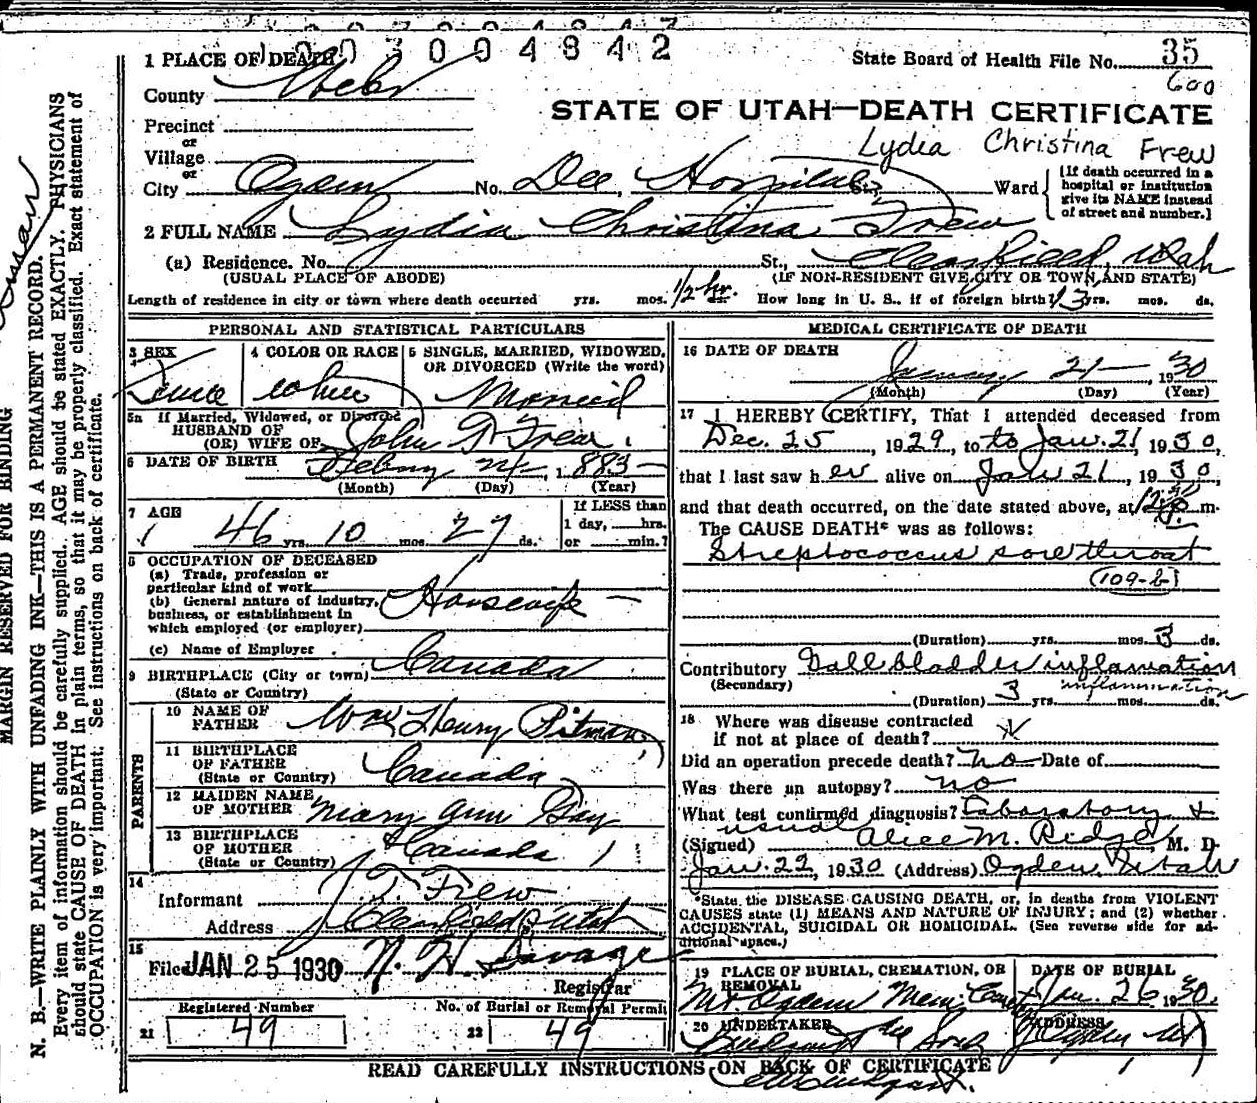 1003004842
1 PLACE OF DEATH
State Board of Health File No. 35
600
County Weber
STATE OF UTAH—DEATH CERTIFICATE
Precinct
or
Village
Lydia Christina Frew
or
City Ogden No. Dee Hospital St., Ward
(If death occurred in a
hospital or institution
give its NAME instead
of street and number.)
2 FULL NAME Lydia Christina Frew
(a) Residence. No. St., Clearfield, Utah
(USUAL PLACE OF ABODE) (IF NON-RESIDENT GIVE CITY OR TOWN, AND STATE)
Length of residence in city or town where death occurred yrs. mos. 1/2 hr. ds. How long in U. S., if of foreign birth? 13 yrs. mos. ds.
PERSONAL AND STATISTICAL PARTICULARS
3 SEX
4 COLOR OR RACE
5 SINGLE, MARRIED, WIDOWED,
OR DIVORCED (Write the word)
Female white Married
5a If Married, Widowed, or Divorced
HUSBAND OF
(OR) WIFE OF John T. Frew
6 DATE OF BIRTH 24 1883
(Month) (Day) (Year)
7 AGE
46 yrs. 10 mos. 27 ds.
If LESS than
1 day, hrs.
or min.?
8 OCCUPATION OF DECEASED
(a) Trade, profession or
particular kind of work
(b) General nature of industry,
business, or establishment in
which employed (or employer)
Housewife
(c) Name of Employer
9 BIRTHPLACE (City or town) Canada
(State or Country)
PARENTS
10 NAME OF
FATHER Wm Henry Pitman
11 BIRTHPLACE
OF FATHER
(State or Country) Canada
12 MAIDEN NAME
OF MOTHER Mary Ann Gay
13 BIRTHPLACE
OF MOTHER
(State or Country) Canada
14
Informant J. T. Frew
Address Clearfield, Utah
15
Filed JAN 25 1930
Registrar
Registered Number
21 49
No. of Burial or Removal Permit
22 49
MEDICAL CERTIFICATE OF DEATH
16 DATE OF DEATH
January 21, 1930
(Month) (Day) (Year)
17 I HEREBY CERTIFY, That I attended deceased from
Dec. 25, 1929, to to Jan. 21, 1930,
that I last saw her alive on Jan 21, 1930,
and that death occurred, on the date stated above, at m.
The CAUSE DEATH* was as follows:
Streptococcus sore throat
(109-b)
(Duration) yrs. mos. 3 ds.
Contributory Gall bladder inflamation
(Secondary) inflammation
(Duration) 3 yrs. mos. ds.
18 Where was disease contracted
if not at place of death?
Did an operation precede death? no Date of
Was there an autopsy? no
What test confirmed diagnosis? Laboratory +
usual
(Signed) Alice M. Ridge, M. D.
Jan. 22, 1930 (Address) Ogden, Utah
*State the DISEASE CAUSING DEATH, or, in deaths from VIOLENT
CAUSES state (1) MEANS AND NATURE OF INJURY; and (2) whether
ACCIDENTAL, SUICIDAL OR HOMICIDAL. (See reverse side for ad-
ditional space.)
19 PLACE OF BURIAL, CREMATION, OR
REMOVAL
DATE OF BURIAL
Jan. 26 1930.
20 UNDERTAKER
ADDRESS
Ogden Ut
READ CAREFULLY INSTRUCTIONS ON BACK OF CERTIFICATE
MARGIN RESERVED FOR BINDING
N. B.—WRITE PLAINLY WITH UNFADING INK—THIS IS A PERMANENT RECORD.
Every item of information should be carefully supplied. AGE should be stated EXACTLY. PHYSICIANS
should state CAUSE OF DEATH in plain terms, so that it may be properly classified. Exact statement of
OCCUPATION is very important. See instructions on back of certificate.